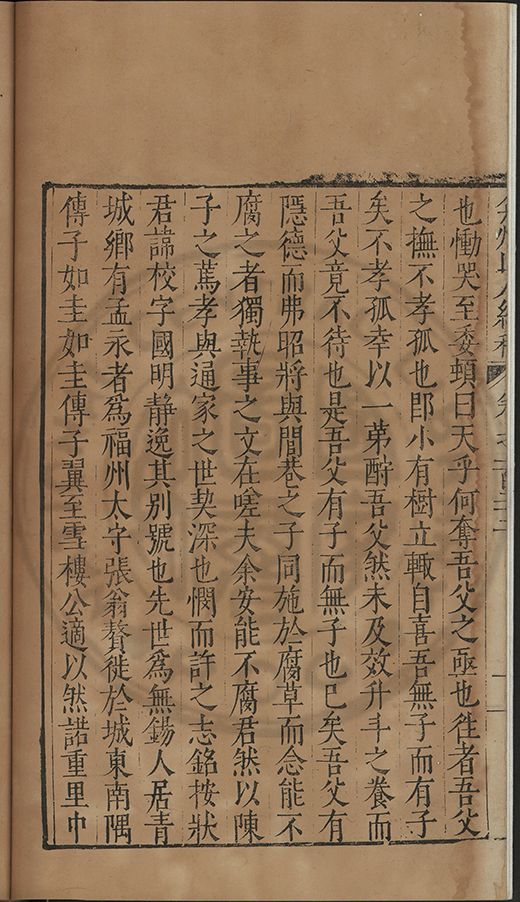 也慟哭至委頓曰天乎何奪吾父之亟也徃者吾父
之撫不孝孤也卽小有樹立輙自喜吾無子而有子
矣不孝孤幸以一第酧吾父然未及效升斗之養而
吾父竟不待也是吾父有子而無子也已矣吾父有
隱德而弗昭將與閭巷之子同施於腐草而念能不
腐之者獨執事之文在嗟夫余安能不腐君然以陳
子之篤孝與通家之世契深也憫而許之志銘按狀
君諱校字國明靜逸其别號也先世爲無錫人居青
城鄉有孟永者爲福州太守張翁贅徙於城東南隅
傳子如圭如圭傳子翼至雪樓公適以然諾重里中